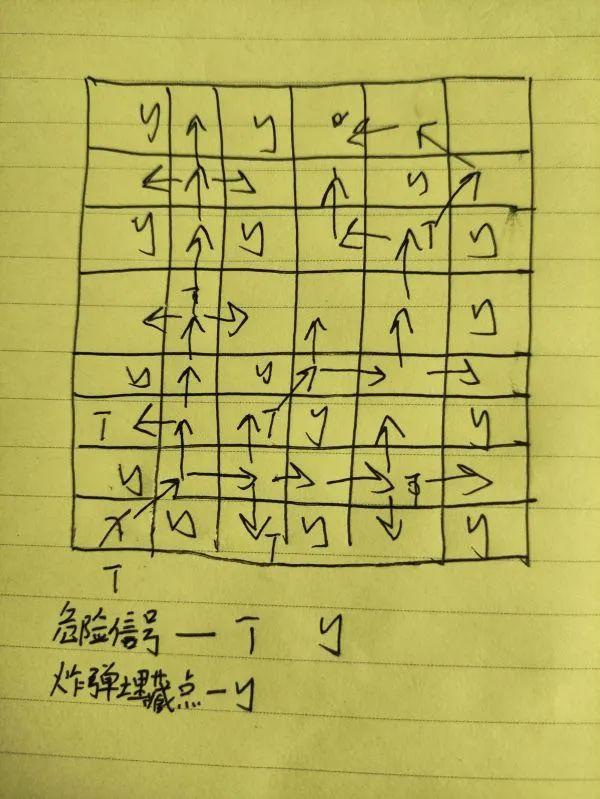 y y a
y
y y T y
T y
y y
T T y y
y T
x y T y y
T
危险信号 — T y
炸弹埋藏点 — y